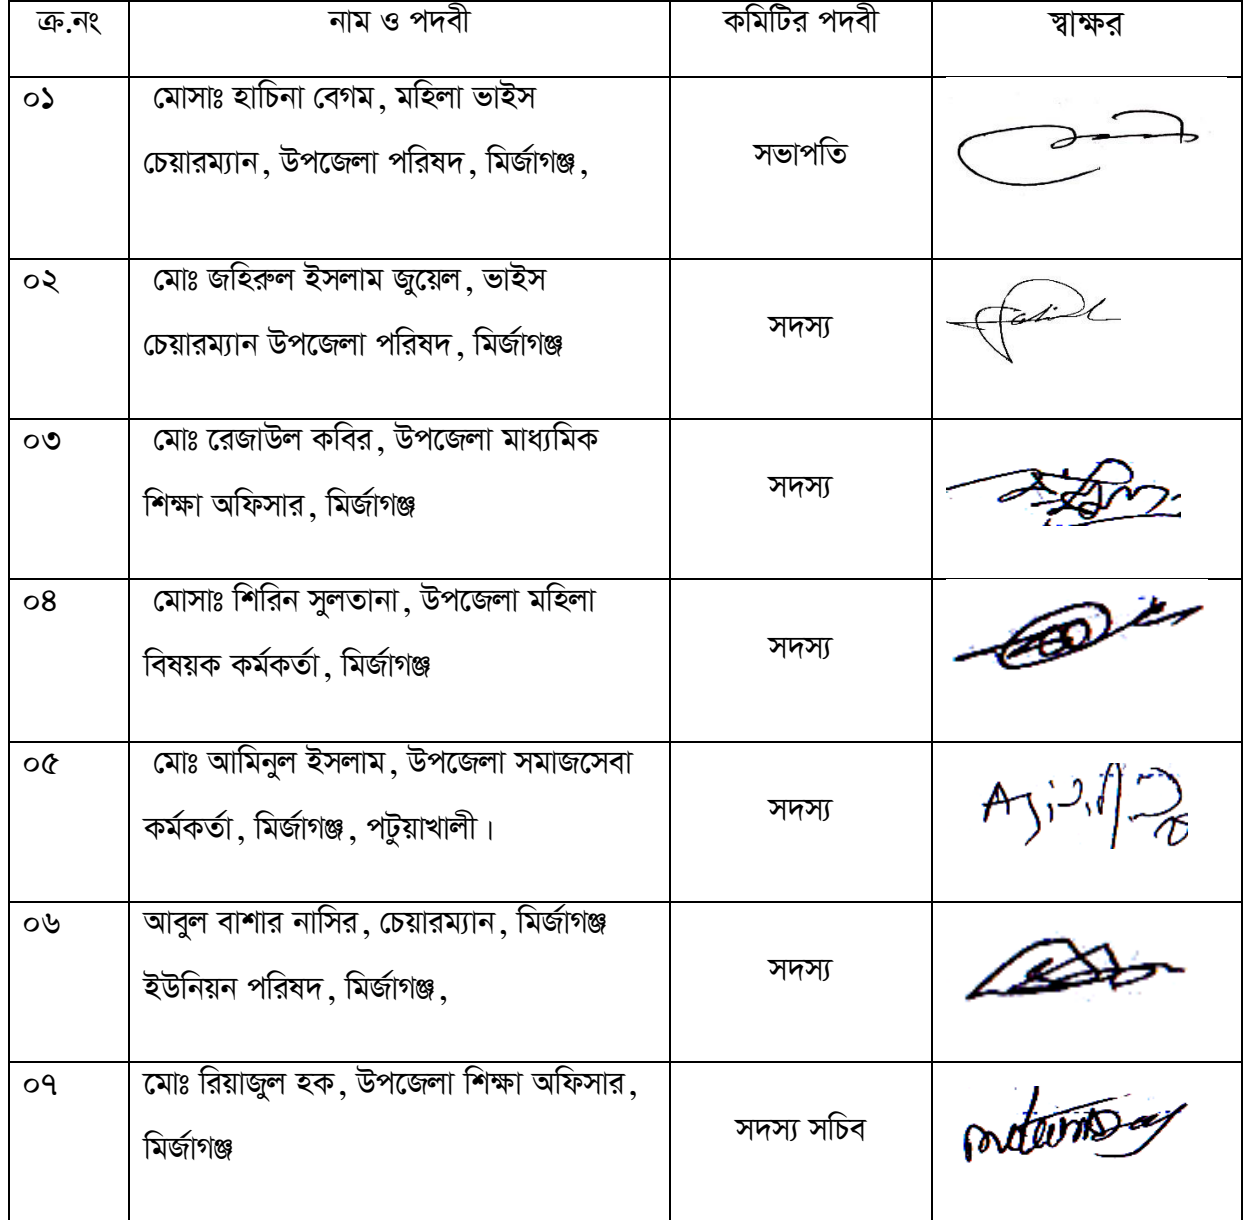 ক্র.নং নাম ও পদবী কমিটির পদবী স্বাক্ষর
০১ মোসাঃ হাচিনা বেগম, মহিলা ভাইস
চেয়ারম্যান, উপজেলা পরিষদ, মির্জাগঞ্জ,
সভাপতি
০২ মোঃ জহিরুল ইসলাম জুয়েল, ভাইস
চেয়ারম্যান উপজেলা পরিষদ, মির্জাগঞ্জ
সদস্য
০৩ মোঃ রেজাউল কবির, উপজেলা মাধ্যমিক
শিক্ষা অফিসার, মির্জাগঞ্জ
সদস্য
০৪ মোসাঃ শিরিন সুলতানা, উপজেলা মহিলা
বিষয়ক কর্মকর্তা, মির্জাগঞ্জ
সদস্য
০৫ মোঃ আমিনুল ইসলাম, উপজেলা সমাজসেবা
কর্মকর্তা, মির্জাগঞ্জ, পটুয়াখালী।
সদস্য
০৬ আবুল বাশার নাসির, চেয়ারম্যান, মির্জাগঞ্জ
ইউনিয়ন পরিষদ, মির্জাগঞ্জ,
সদস্য
০৭ মোঃ রিয়াজুল হক, উপজেলা শিক্ষা অফিসার,
মির্জাগঞ্জ
সদস্য সচিব